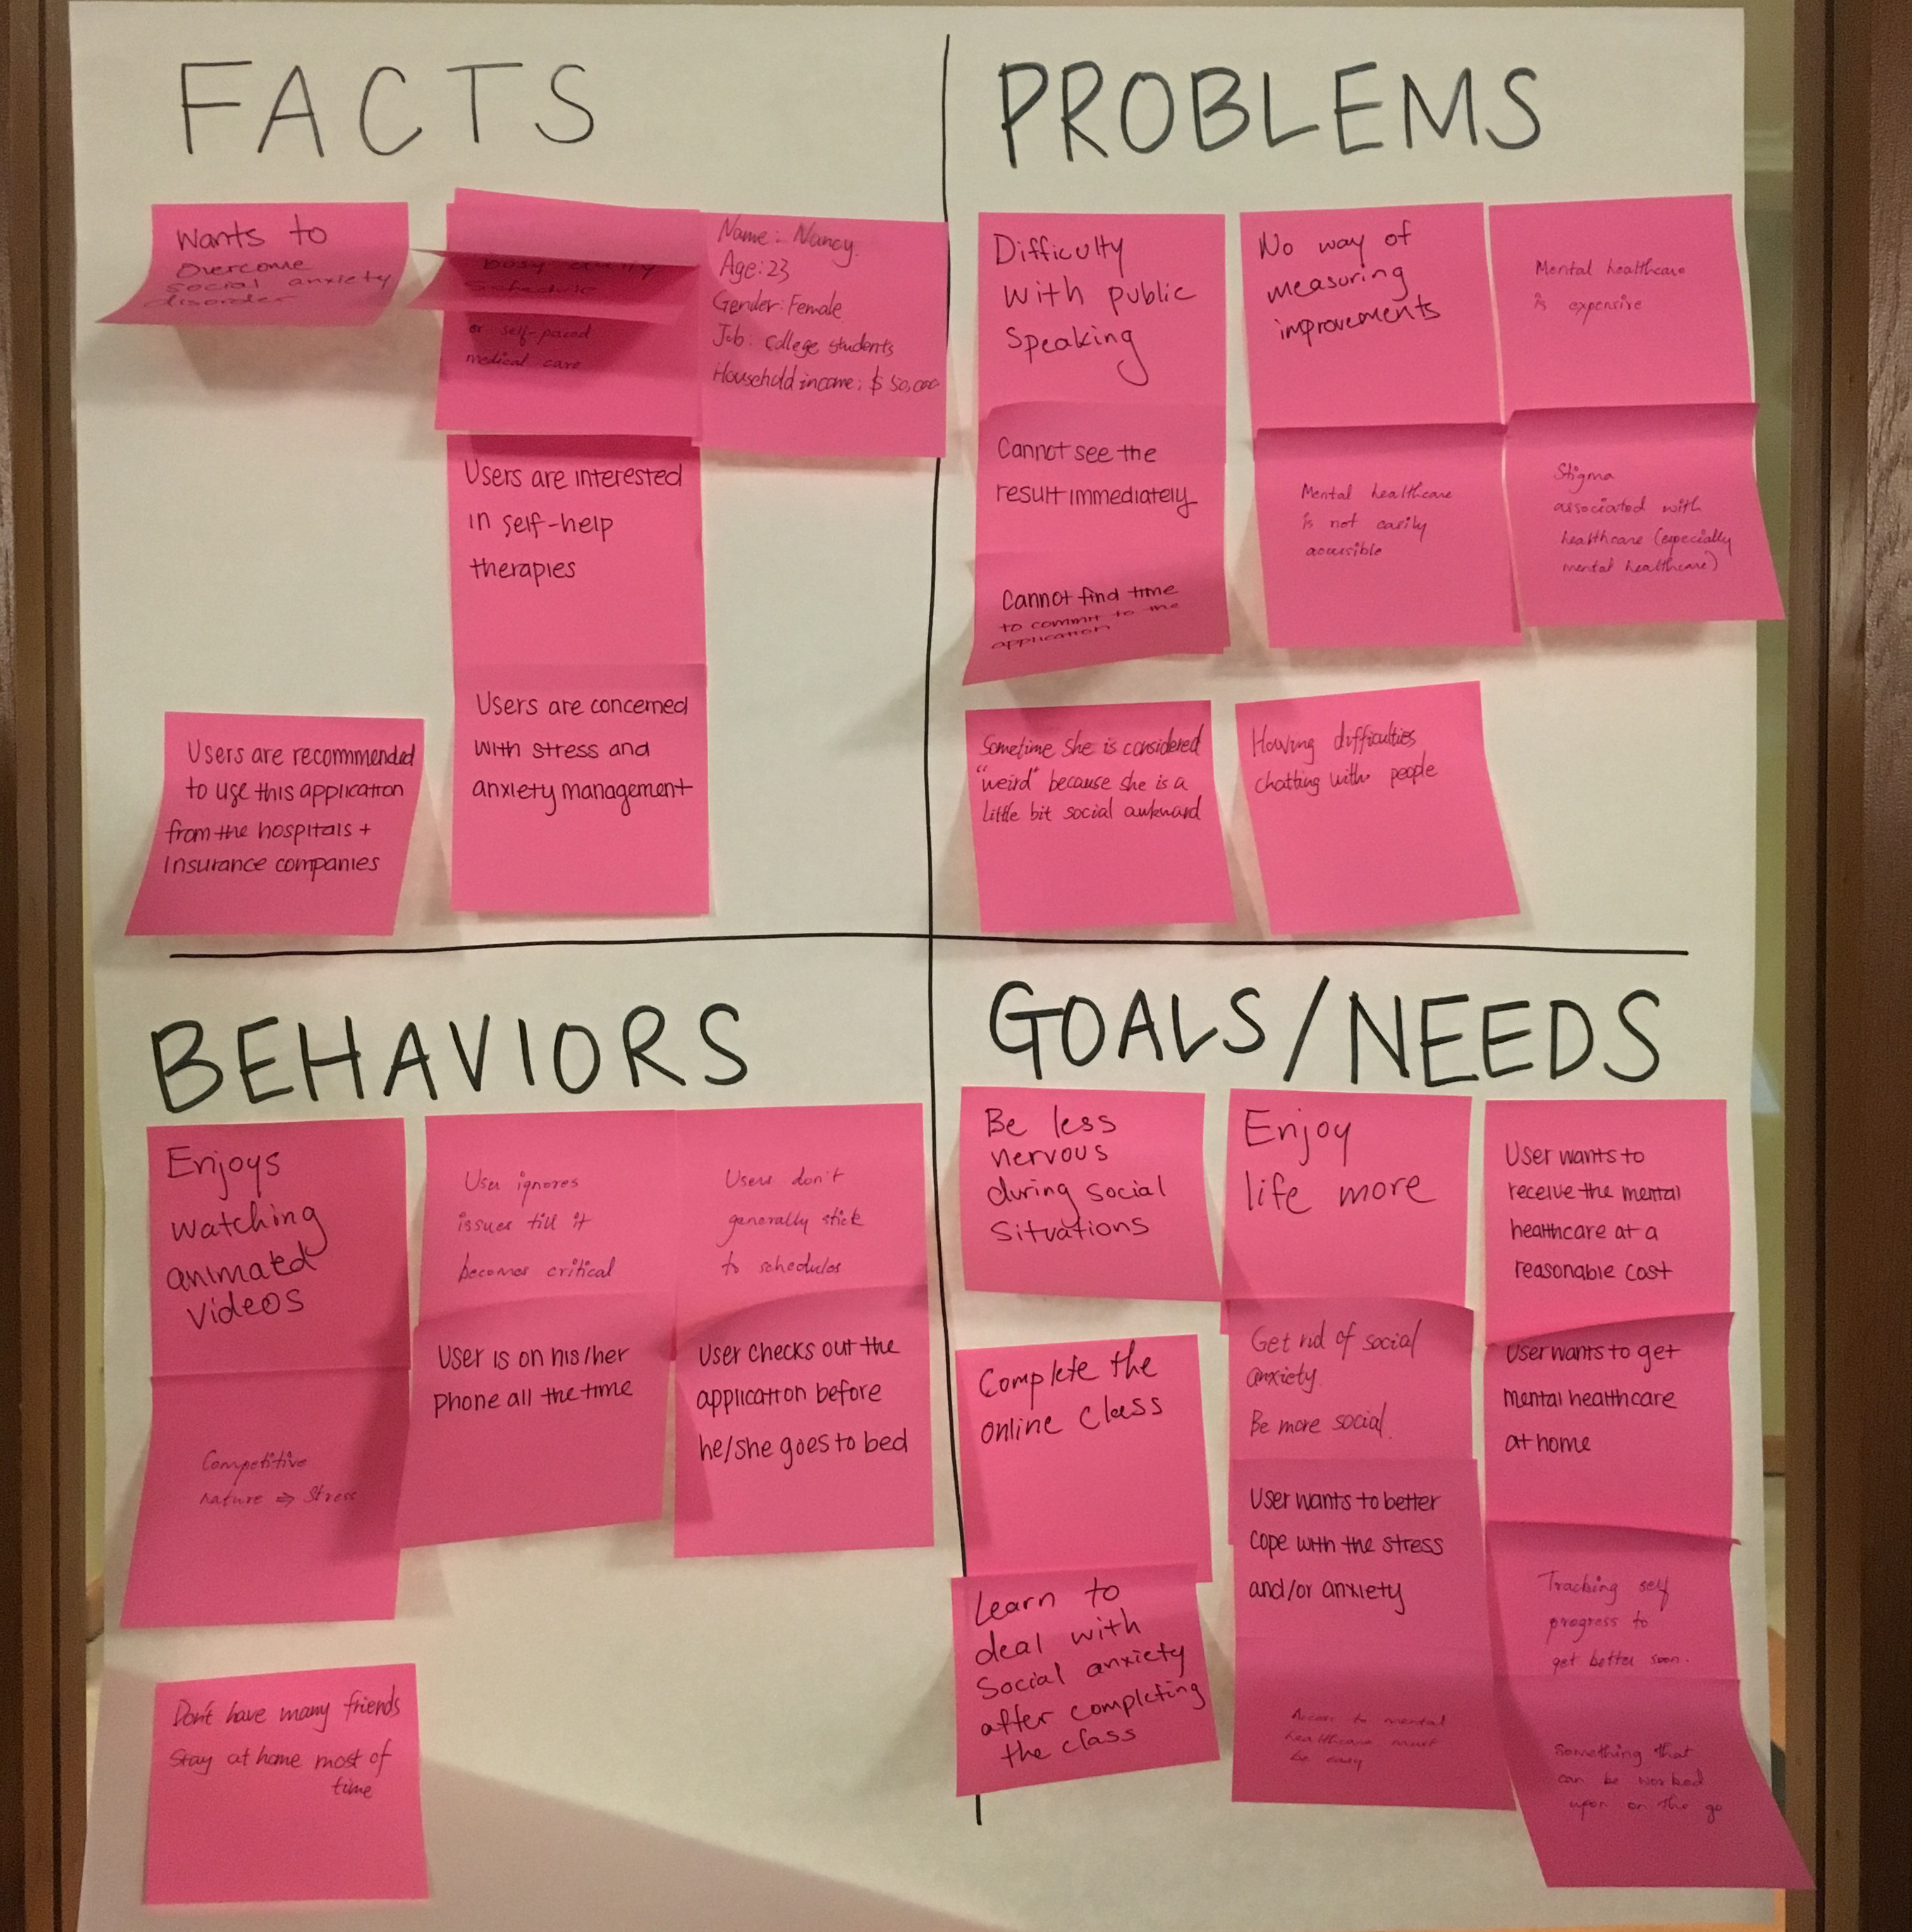 FACTS
Wants to
overcome
social anxiety
disorder
busy
schedule
or self-paced
medical care
Name: Nancy.
Age: 23
Gender: Female
Job: college students
Household income: $ 50,000
Users are interested
in self-help
therapies
Users are concerned
with stress and
anxiety management
Users are recommended
to use this application
from the hospitals +
Insurance companies
PROBLEMS
Difficulty
with public
Speaking
No way of
measuring
improvements
Mental healthcare
is expensive
Cannot see the
result immediately
Mental healthcare
is not easily
accessible
Stigma
associated with
healthcare (especially
mental healthcare)
Cannot find time
to commit to the
application
Sometime she is considered
"weird" because she is a
little bit social awkward
Having difficulties
chatting with people
BEHAVIORS
Enjoys
watching
animated
videos
User ignores
issues till it
becomes critical
Users don't
generally stick
to schedules
User is on his/her
phone all the time
User checks out the
application before
he/she goes to bed
Competitive
nature ⇒ Stress
Don't have many friends
Stay at home most of
time
GOALS/NEEDS
Be less
nervous
during social
situations
Enjoy
life more
User wants to
receive the mental
healthcare at a
reasonable cost
Complete the
online class
Get rid of social
anxiety
Be more social.
User wants to get
mental healthcare
at home
Learn to
deal with
Social anxiety
after completing
the class
User wants to better
cope with the stress
and/or anxiety
Tracking self
progress to
get better soon.
Access to mental
healthcare must
be easy
Something that
can be worked
upon on the go